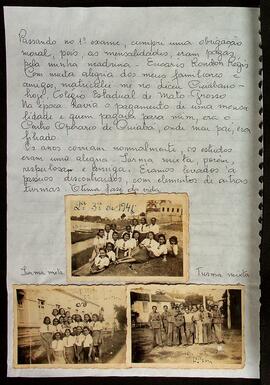 Passando no 1º exame, cumpriu uma obrigação
moral, pois, as mensalidades, eram pagas
pela minha madrinha - Eucaris Rondon Regis
Com muita alegria dos meus familiares e
amigos, matriculei-me no Liceu Cuiabano -
hoje, Colégio Estadual de Mato Grosso
Na época havia o pagamento de uma mensa
lidade e quem pagava para mim, era o
Centro Operário de Cuiabá, onde meu pai, era
filiado.
Os anos corriam normalmente, os estudos
eram uma alegria. Turma mista, porém,
respeitosa e amiga. Éramos levados a
passeios descontraídos, com elementos de outras
turmas. Ótima fase da vida.
2ª 3º de 1940
Turma mista
Turma mista